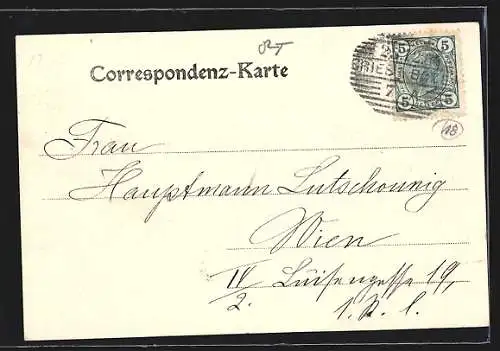 ÖT
Correspondenz-Karte
5 5
5 5
GRIES
7
18
Frau
Hauptmann Lutschounig
Wien
IV/2. Luisengasse 19,
1. St. l.